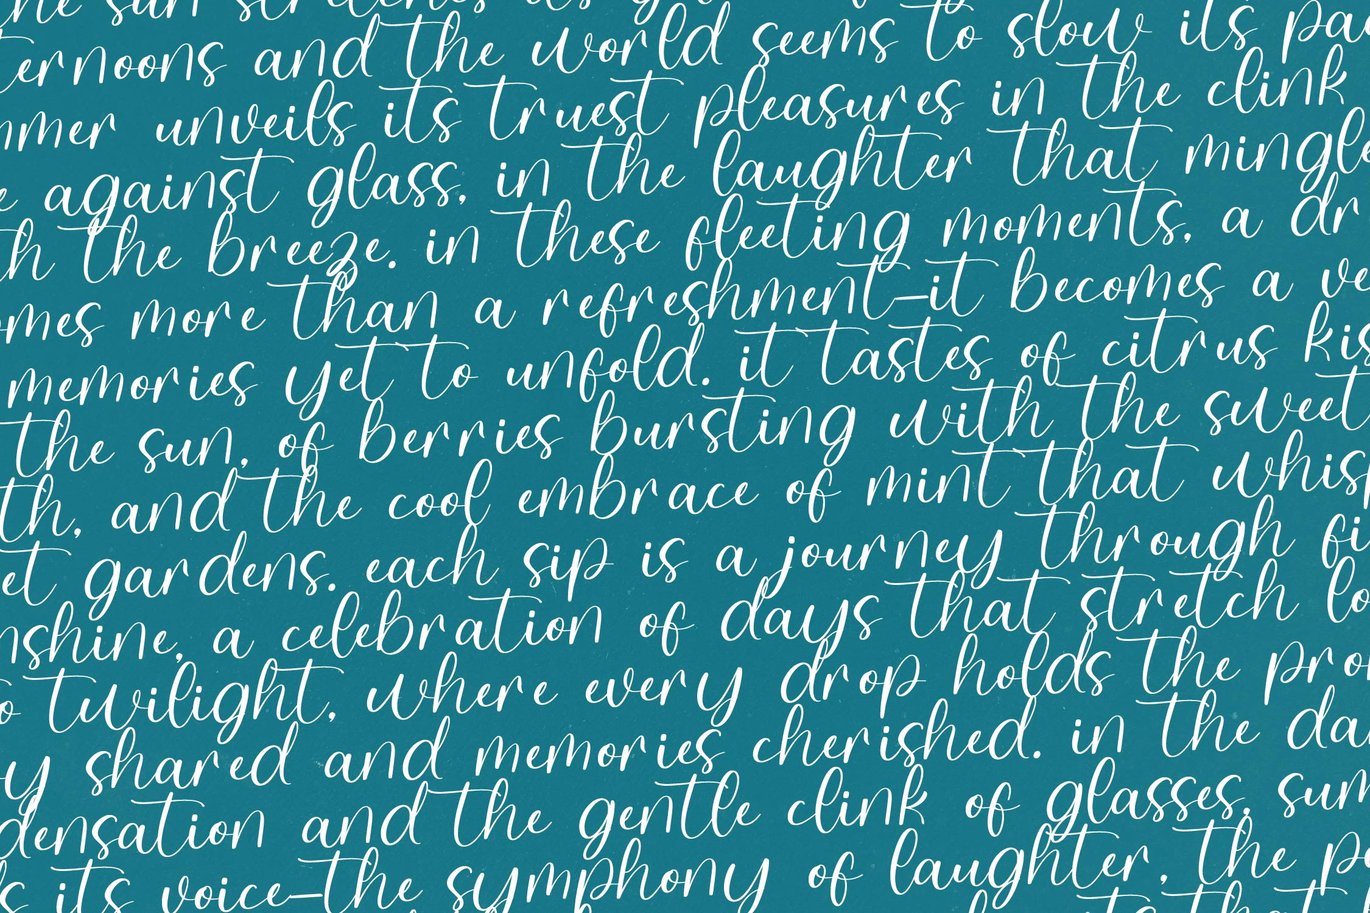 the sun stretches its
ternoons and the world seems to slow its pa
mmer unveils its truest pleasures in the clink
e against glass, in the laughter that mingle
th the breeze. in these fleeting moments, a dr
omes more than a refreshment—it becomes a ve
memories yet to unfold. it tastes of citrus kis
the sun, of berries bursting with the sweet
th, and the cool embrace of mint that whis
et gardens. each sip is a journey through fi
nshine, a celebration of days that stretch lo
o twilight, where every drop holds the pro
y shared and memories cherished. in the da
densation and the gentle clink of glasses, sum
s its voice—the symphony of laughter, the p